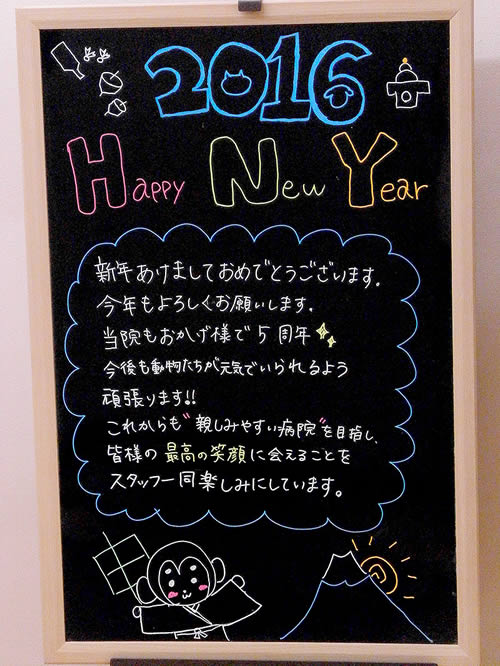 2016
Happy New Year
新年あけましておめでとうございます。
今年もよろしくお願いします。
当院もおかげ様で5周年
今後も動物たちが元気でいられるよう
頑張ります!!
これからも"親しみやすい病院"を目指し、
皆様の最高の笑顔に会えることを
スタッフ一同楽しみにしています。